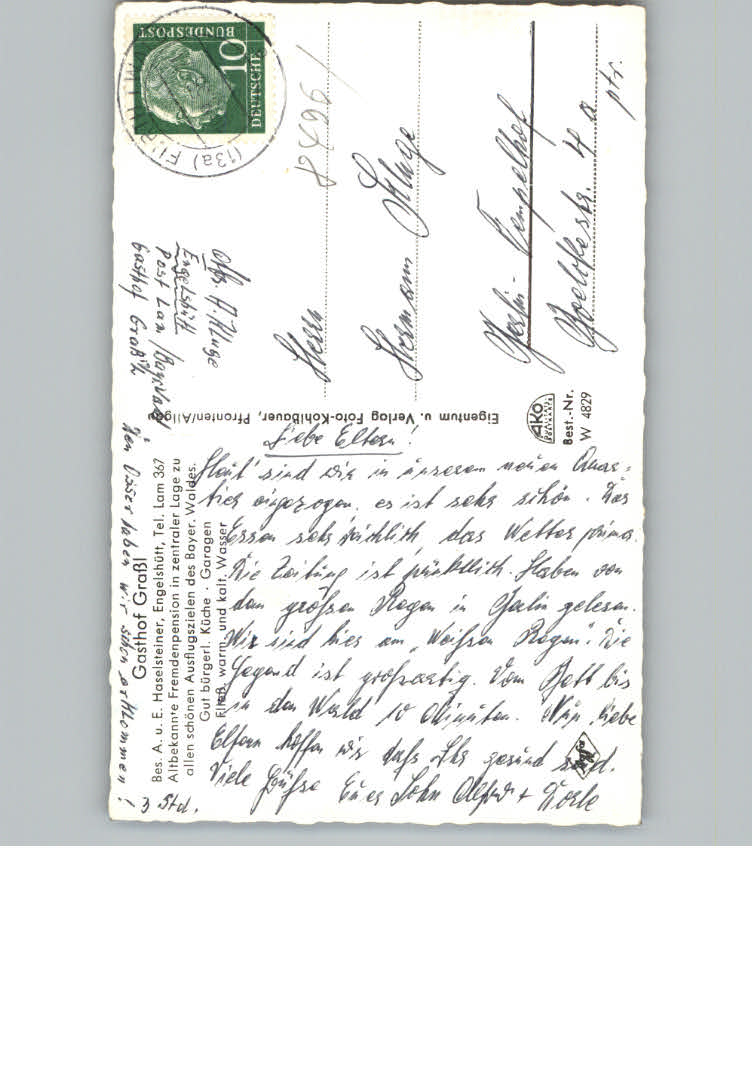 DEUTSCHE
BUNDESPOST
10
(13a)
Abs. A. Kluge
Engelshütt
Post Lam /
Gasthof Graßl
Herrn
Hermann Kluge
Berlin-Tempelhof
Boelckestr. 4a
ptr.
Eigentum u. Verlag Foto-Kohlbauer, Pfronten/Allgäu
AKO
Best.-Nr.
W 4829
Gasthof Graßl
Bes. A. u. E. Haselsteiner, Engelshütt, Tel. Lam 367
Altbekannte Fremdenpension in zentraler Lage zu
allen schönen Ausflugszielen des Bayer. Waldes.
Gut bürgerl. Küche · Garagen
Fließ. warm. und kalt. Wasser
Liebe Eltern!
Heut' sind wir in unserem neuen Quar-
tier eingezogen. es ist sehr schön. Das
Essen sehr reichlich das Wetter prima.
Die Zeitung ist pünktlich. Haben von
dem großen Regen in Berlin gelesen.
Wir sind hier am "Weißen Regen". Die
Gegend ist großartig. Vom Bett bis
in den Wald 10 Minuten. Nun, liebe
Eltern hoffen wir daß Ihr gesund seid.
Viele Grüße Euer Sohn Alfred +
Den Osser haben wir schon erklommen!
3 Std.
Agfa